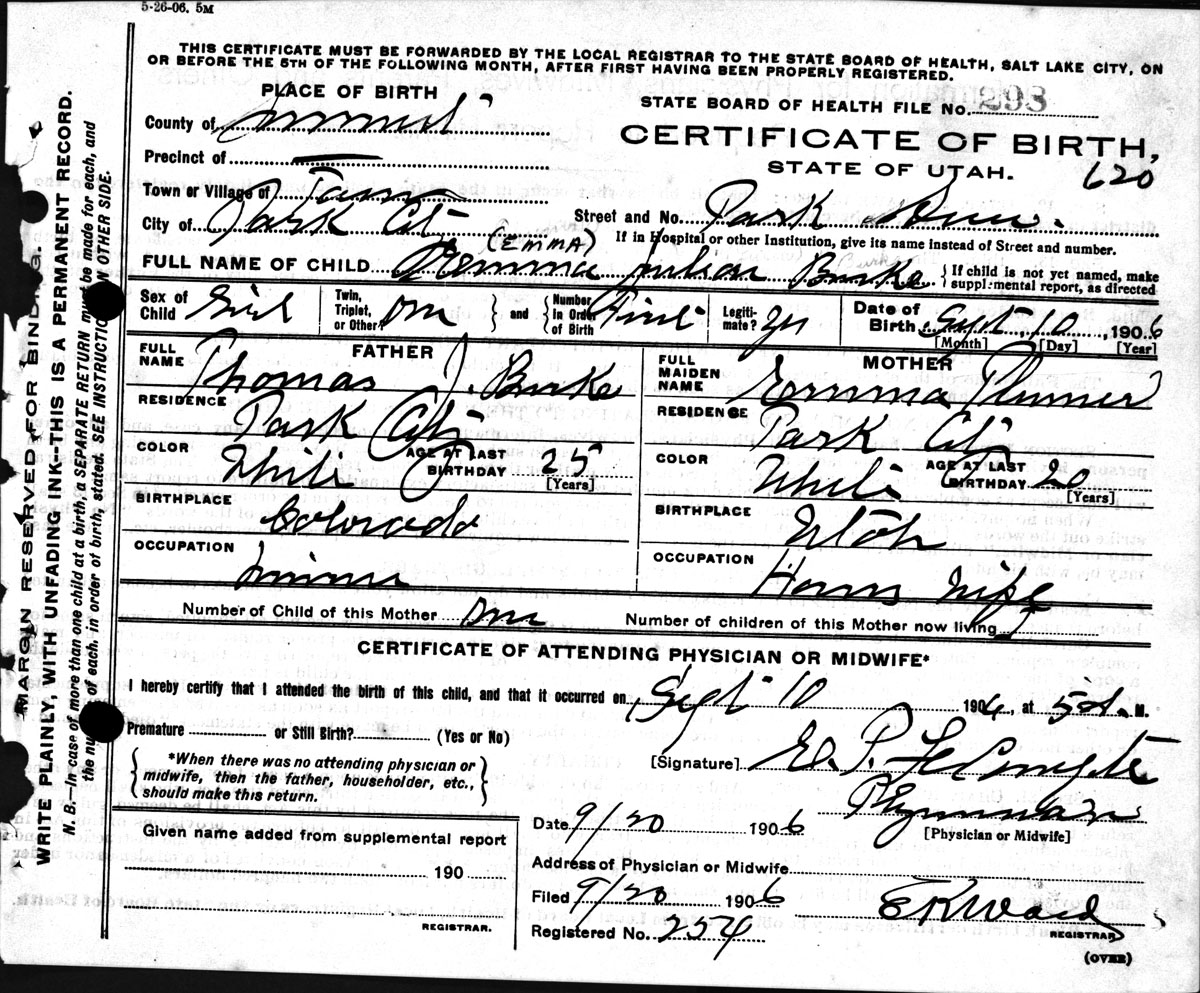 5-26-06. 5M
THIS CERTIFICATE MUST BE FORWARDED BY THE LOCAL REGISTRAR TO THE STATE BOARD OF HEALTH, SALT LAKE CITY, ON
OR BEFORE THE 5TH OF THE FOLLOWING MONTH, AFTER FIRST HAVING BEEN PROPERLY REGISTERED.
PLACE OF BIRTH
STATE BOARD OF HEALTH FILE No. 293
County of Summit
CERTIFICATE OF BIRTH,
Precinct of
STATE OF UTAH.
620
Town or Village of
City of Park City
Street and No. Park Ave.
(EMMA)
If in Hospital or other Institution, give its name instead of Street and number.
FULL NAME OF CHILD Burke
{ If child is not yet named, make
supplemental report, as directed
Sex of Child Girl
Twin, Triplet, or Other? One } and { Number In Order of Birth First
Legitimate? Yes
Date of Birth Sept. 10, 1906
[Month] [Day] [Year]
FATHER
FULL NAME Thomas J. Burke
RESIDENCE Park City
COLOR White
AGE AT LAST BIRTHDAY 25
[Years]
BIRTHPLACE Colorado
OCCUPATION Miner
MOTHER
FULL MAIDEN NAME Emma
RESIDENCE Park City
COLOR White
AGE AT LAST BIRTHDAY 20
[Years]
BIRTHPLACE Utah
OCCUPATION House Wife
Number of Child of this Mother One
Number of children of this Mother now living 1
CERTIFICATE OF ATTENDING PHYSICIAN OR MIDWIFE*
I hereby certify that I attended the birth of this child, and that it occurred on Sept 10 1906, at 5 a. M.
Premature or Still Birth? (Yes or No)
{ *When there was no attending physician or
midwife, then the father, householder, etc.,
should make this return. }
[Signature] E. P.
Physician
[Physician or Midwife]
Date 9/20 1906
Given name added from supplemental report
190
REGISTRAR.
Address of Physician or Midwife
Filed 9/20 1906
E K Ward
REGISTRAR
Registered No. 254
(OVER)
MARGIN RESERVED FOR BINDING.
WRITE PLAINLY, WITH UNFADING INK—THIS IS A PERMANENT RECORD.
N. B.—In case of more than one child at a birth, a SEPARATE RETURN must be made for each, and
the number of each, in order of birth, stated. SEE INSTRUCTIONS ON OTHER SIDE.